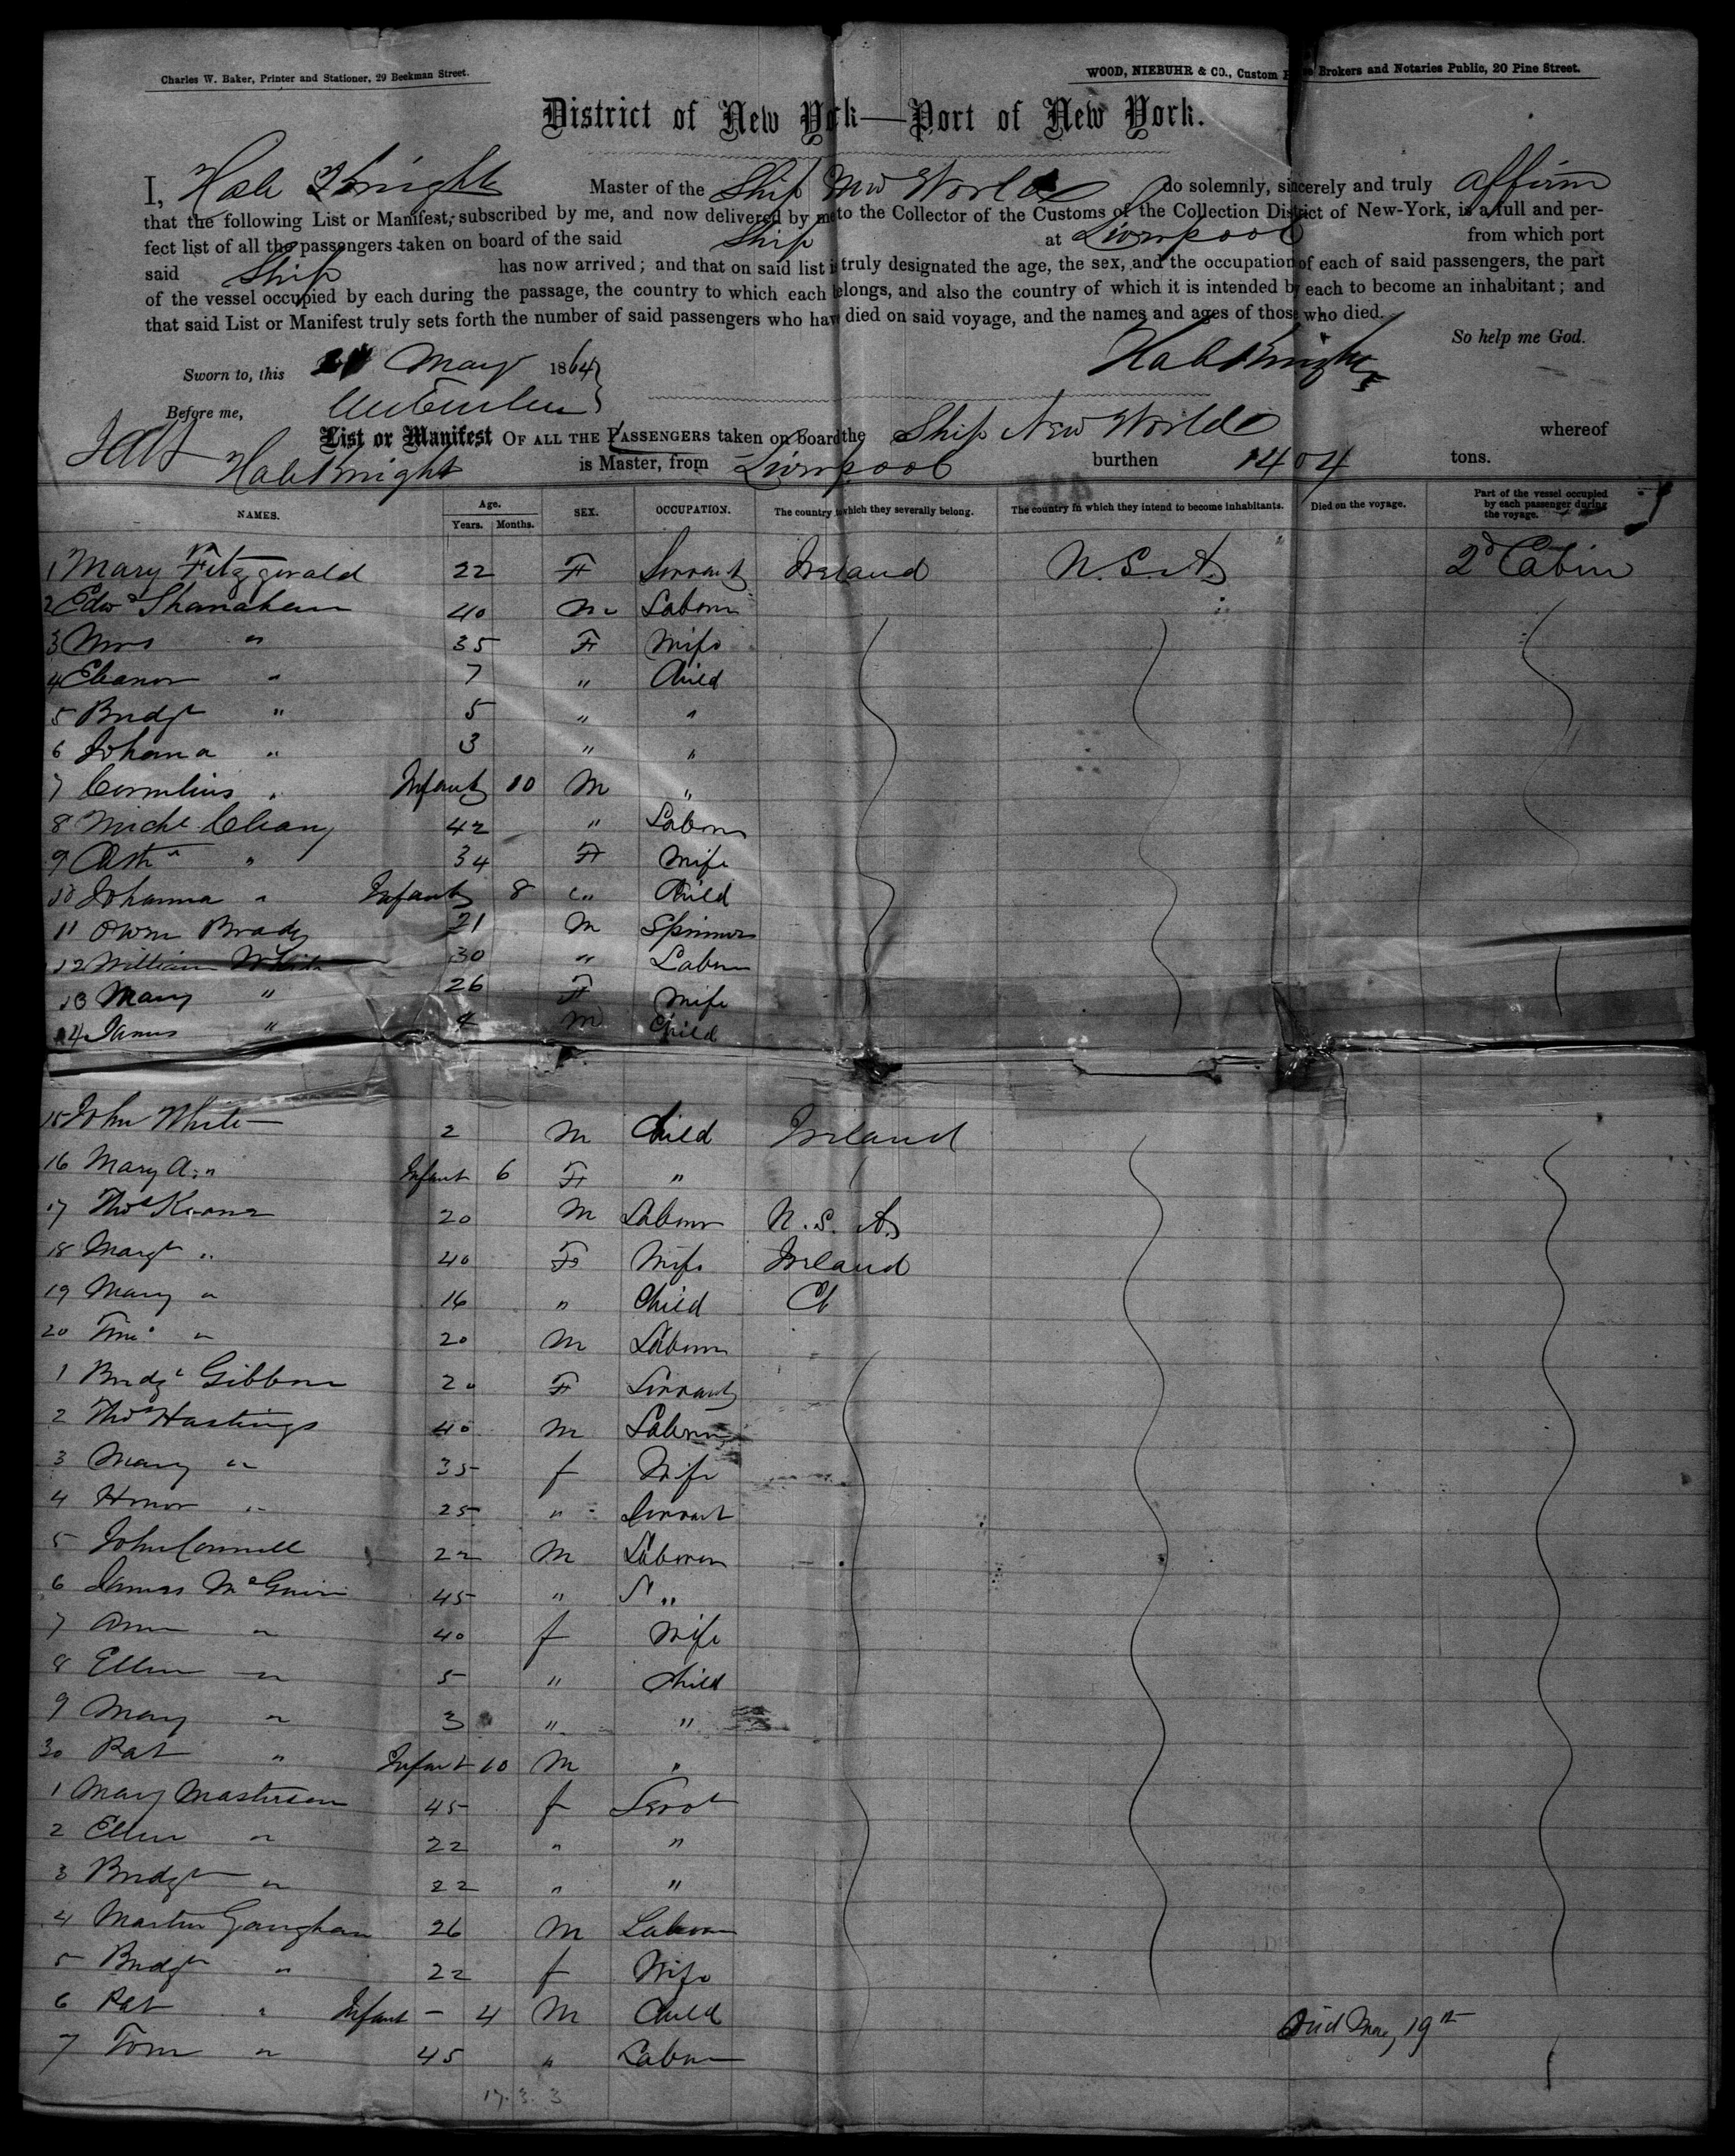 Charles W. Baker, Printer and Stationer, 29 Beekman Street.
WOOD, NIEBUHR & CO., Custom Brokers and Notaries Public, 20 Pine Street.
District of New York—Port of New York.
I, Hale Knight Master of the Ship New World do solemnly, sincerely and truly affirm
that the following List or Manifest, subscribed by me, and now delivered by me to the Collector of the Customs of the Collection District of New-York, is a full and per-
fect list of all the passengers taken on board of the said Ship at Liverpool from which port
said Ship has now arrived; and that on said list is truly designated the age, the sex, and the occupation of each of said passengers, the part
of the vessel occupied by each during the passage, the country to which each belongs, and also the country of which it is intended by each to become an inhabitant; and
that said List or Manifest truly sets forth the number of said passengers who have died on said voyage, and the names and ages of those who died.
So help me God.
Sworn to, this 21 May 1864
Hale Knight
Before me,
List or Manifest OF ALL THE PASSENGERS taken on board the Ship New World whereof
Hale Knight is Master, from Liverpool burthen 1404 tons.
NAMES. Age. Years. Months. SEX. OCCUPATION. The country to which they severally belong. The country in which they intend to become inhabitants. Died on the voyage. Part of the vessel occupied by each passenger during the voyage.
1 Mary Fitzgerald 22 F Servant Ireland U.S.A. 2d Cabin
2 Edwd Shanahan 40 m Laborer
3 Mrs " 35 F Wife
4 Eleanor " 7 " Child
5 Bridgt " 5 " "
6 Johana " 3 " "
7 Cornelius " Infant 10 M "
8 Michl Cleary 42 " Laborer
9 Cathn " 34 F Wife
10 Johanna " Infant 8 " Child
11 Owen Brady 21 M Spinner
12 William White 30 " Laborer
13 Mary " 26 F Wife
14 James " 4 M Child
15 John White 2 M Child Ireland
16 Mary A. " Infant 6 F "
17 Thos Keane 20 M Laborer U.S.A.
18 Margt " 40 F Wife Ireland
19 Mary " 16 " Child
20 " 20 M Laborer
1 Bridgt Gibbons 20 F Servant
2 Thos Hastings 40 M Laborer
3 Mary " 35 f Wife
4 Honor " 25 " Servant
5 John Connell 22 M Laborer
6 James McGuire 45 " "
7 Ann " 40 f Wife
8 Ellen " 5 " Child
9 Mary " 3 " "
30 Pat " Infant 10 M "
1 Mary Masterson 45 f Servt
2 Ellen " 22 " "
3 Bridgt " 22 " "
4 Martin Gaughan 26 M Laborer
5 Bridgt " 22 f Wife
6 Pat " Infant - 4 M Child Died May 19th
7 Tom " 45 " Laborer
17. 3. 3